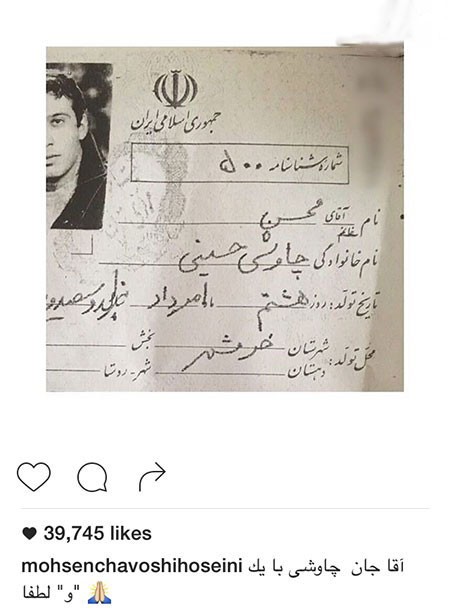 جمهوری اسلامی ایران
شماره شناسنامه ۵۰۰
نام آقای محسن
خانم
نام خانوادگی چاوشی حسینی
تاریخ تولد: روز هشتم ماه مرداد
محل تولد: شهرستان خرمشهر بخش
دهستان شهر - روستا
39,745 likes
mohsenchavoshihoseini آقا جان چاوشی با یك
"و" لطفا 🙏